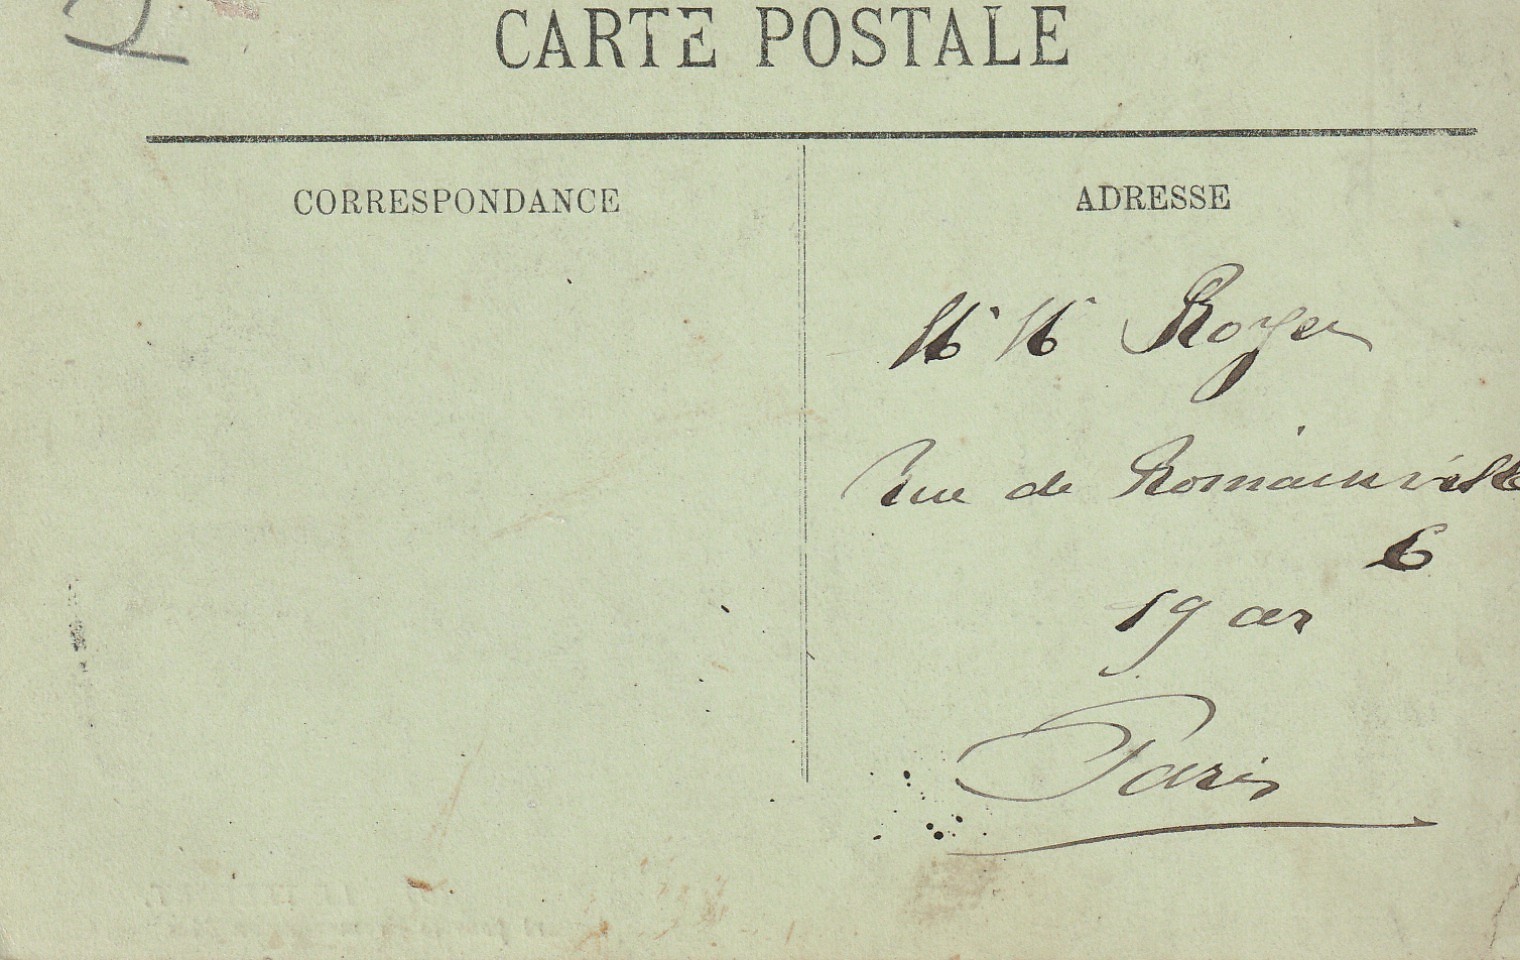 CARTE POSTALE
CORRESPONDANCE
ADRESSE
M M Royer
rue de Romainville
6
19 arr
Paris